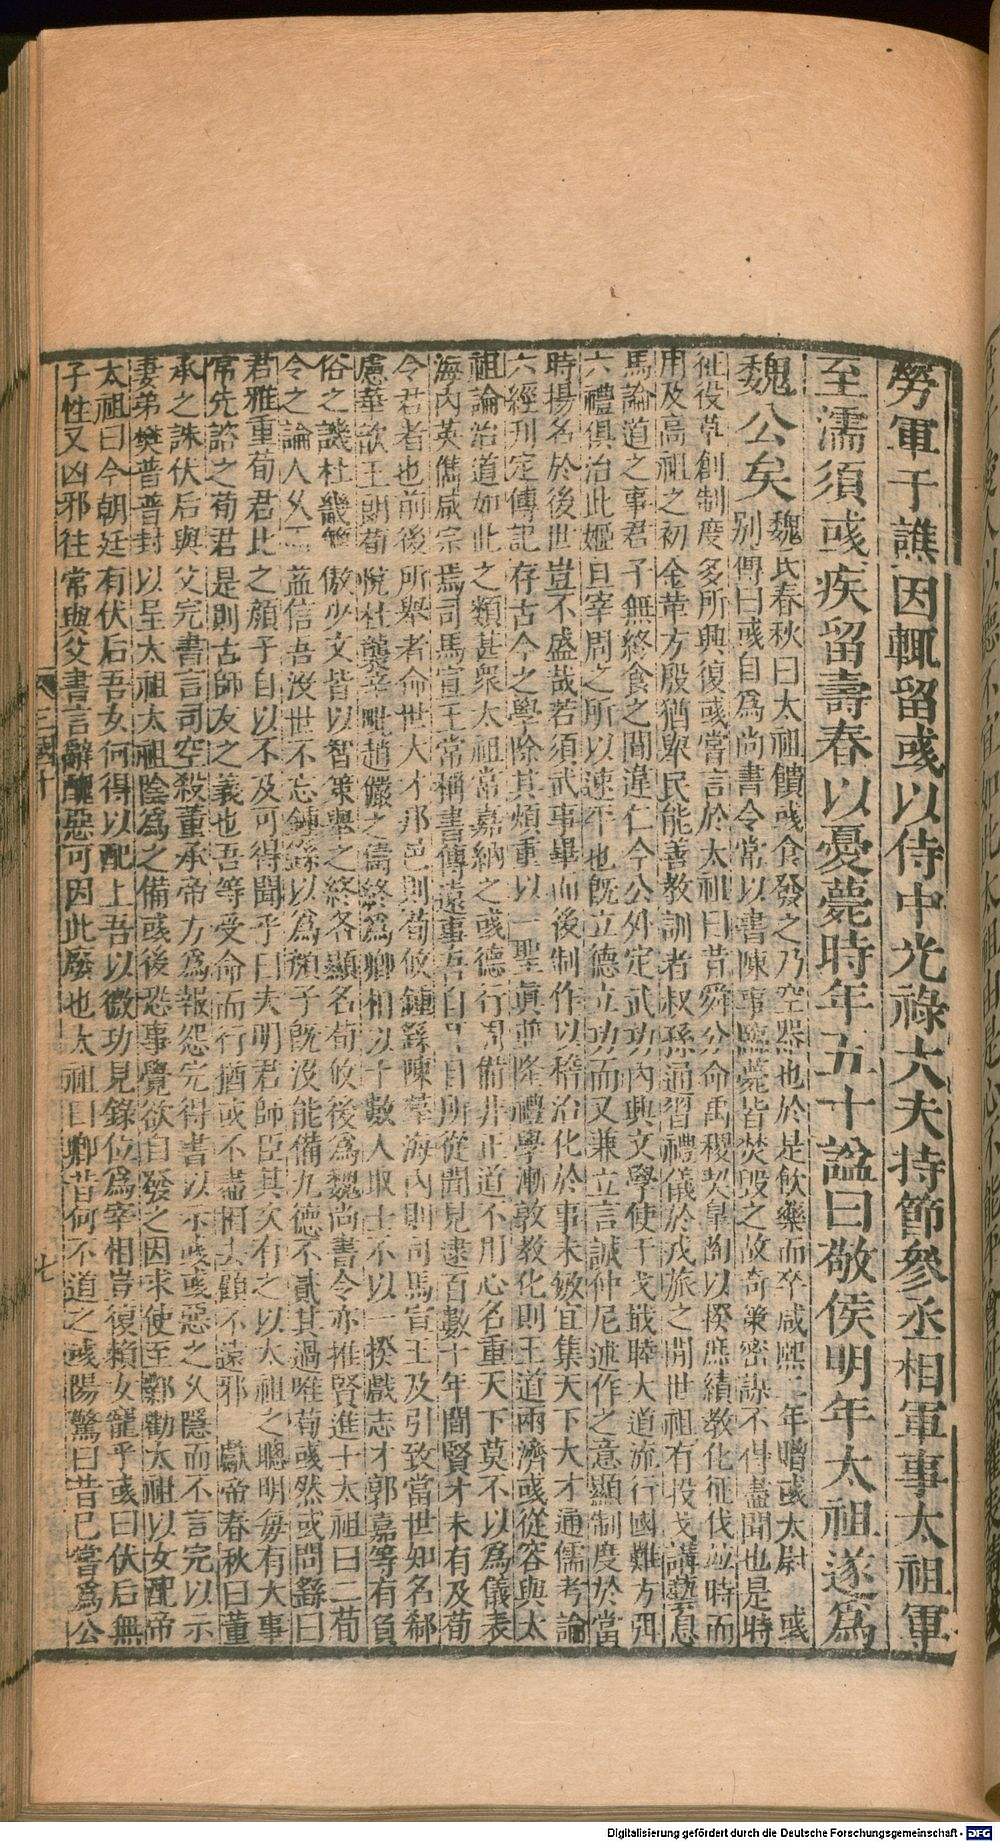 勞軍于譙因輒留彧以侍中光祿大夫持節參丞相軍事太祖軍
至濡須彧疾留壽春以憂薨時年五十諡曰敬侯明年太祖遂爲
魏公矣
魏氏春秋曰太祖饋彧食發之乃空器也於是飲藥而卒咸熙二年贈彧太尉　彧
別傳曰彧自爲尚書令常以書陳事臨薨皆焚毀之故奇策密謀不得盡聞也是時
征役草創制度多所興復彧嘗言於太祖曰昔舜分命禹稷契皐陶以揆庶績教化征伐並時而
用及高祖之初金革方殷猶舉民能善教訓者叔孫通習禮儀於戎旅之間世祖有投戈講藝息
馬論道之事君子無終食之間違仁今公外定武功內興文學使干戈戢睦大道流行國難方弭
六禮俱治此姬旦宰周之所以速平也旣立德立功而又兼立言誠仲尼述作之意顯制度於當
時揚名於後世豈不盛哉若須武事畢而後制作以稽治化於事未敏宜集天下大才通儒考論
六經刊定傳記存古今之學除其煩重以一聖眞並隆禮學漸敦教化則王道兩濟彧從容與太
祖論治道如此之類甚衆太祖常嘉納之彧德行周備非正道不用心名重天下莫不以爲儀表
海內英儁咸宗焉司馬宣王常稱書傳遠事吾自耳目所從聞見逮百數十年間賢才未有及荀
令君者也前後所舉者命世大才邦邑則荀攸鍾繇陳羣海內則司馬宣王及引致當世知名郗
慮華歆王朗荀悅杜襲辛毗趙儼之儔終爲卿相以十數人取士不以一揆戲志才郭嘉等有負
俗之譏杜畿簡傲少文皆以智策舉之終各顯名荀攸後爲魏尚書令亦推賢進士太祖曰二荀
令之論人久而益信吾沒世不忘鍾繇以爲顏子旣沒能備九德不貳其過唯荀彧然或問繇曰
君雅重荀君比之顏子自以不及可得聞乎曰夫明君師臣其次有之以太祖之聰明每有大事
常先諮之荀君是則古師友之義也吾等受命而行猶或不盡相去顧不遠邪　獻帝春秋曰董
承之誅伏后與父完書言司空殺董承帝方爲報怨完得書以示彧彧惡之久隱而不言完以示
妻弟樊普普封以呈太祖太祖陰爲之備彧後恐事覺欲自發之因求使至鄴勸太祖以女配帝
太祖曰今朝廷有伏后吾女何得以配上吾以微功見錄位爲宰相豈復賴女寵乎彧曰伏后無
子性又凶邪往常與父書言辭醜惡可因此廢也太祖曰卿昔何不道之彧陽驚曰昔已嘗爲公
三國十
七
Digitalisierung gefördert durch die Deutsche Forschungsgemeinschaft - DFG